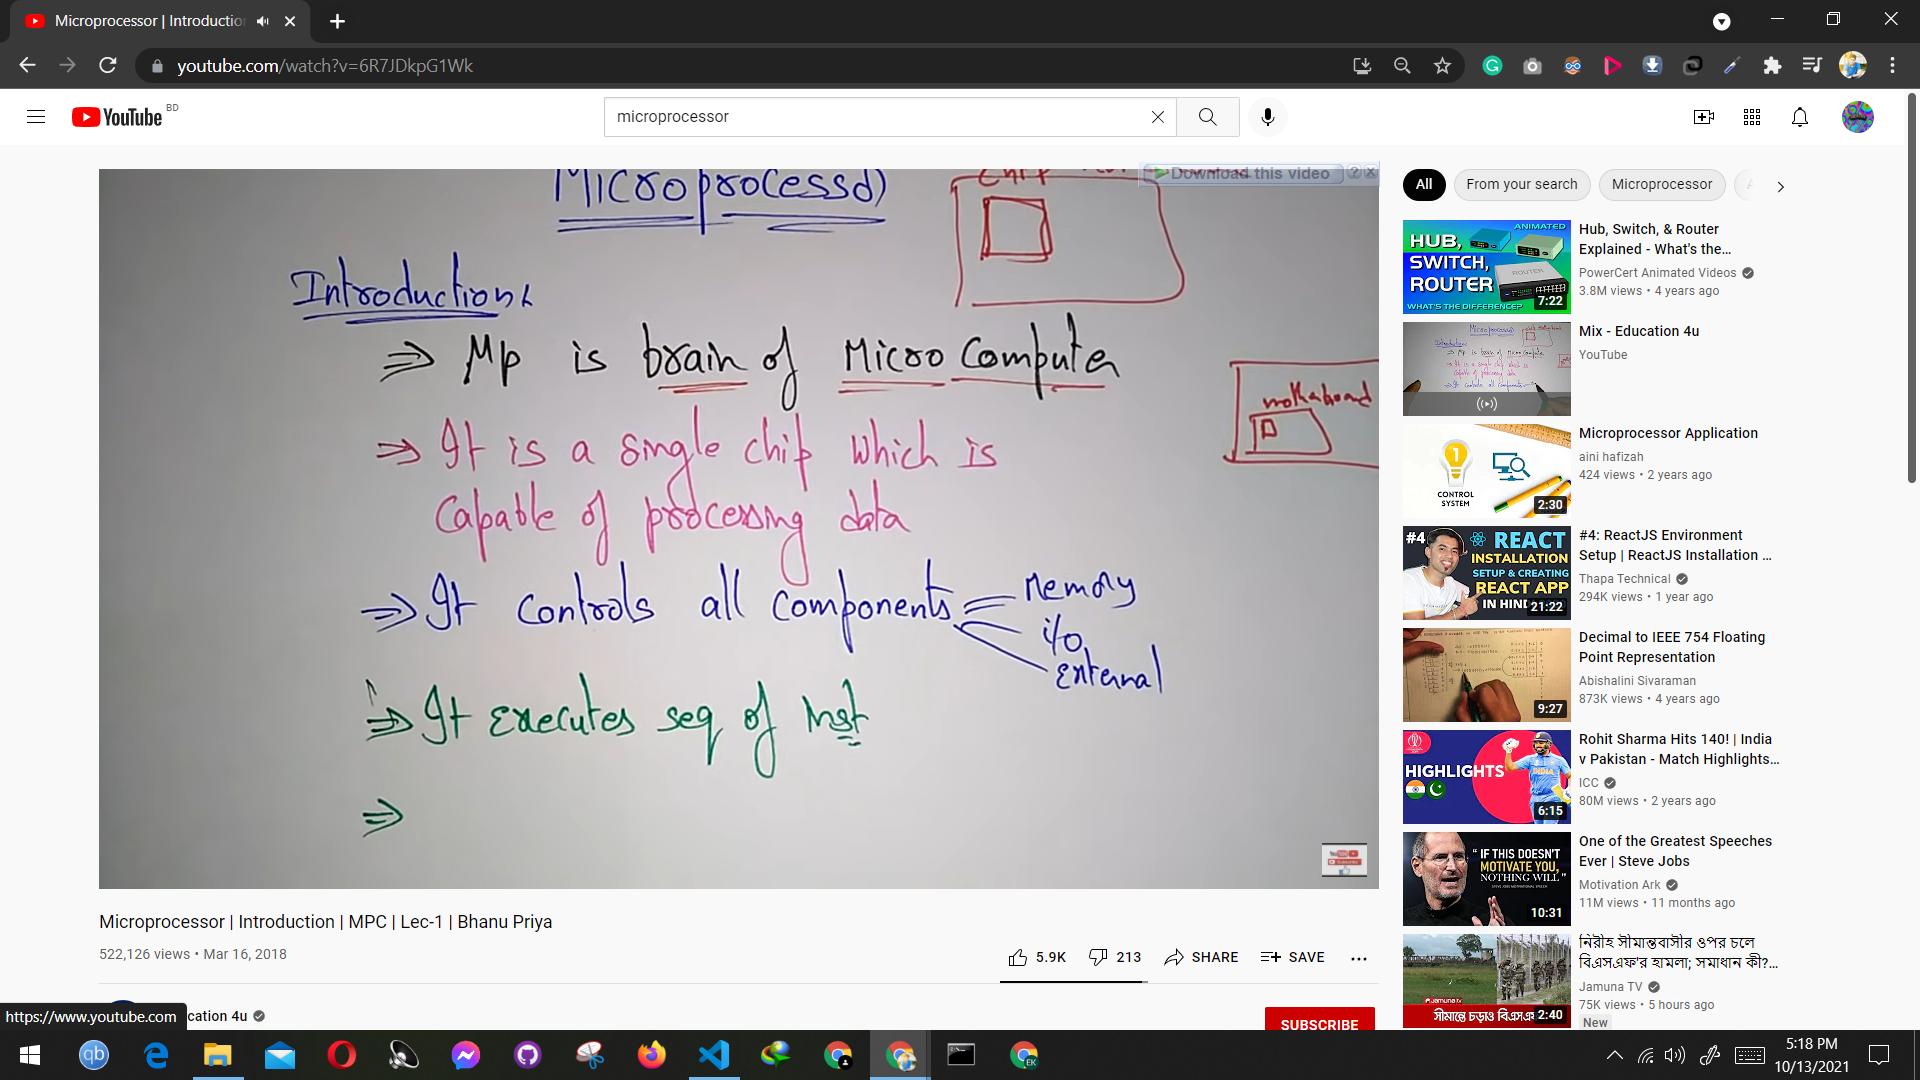 Microprocessor | Introduction
youtube.com/watch?v=6R7JDkpG1Wk
YouTube BD
microprocessor
Download this video
Microprocessor
Introduction:
⇒ Mp is brain of Micro Computer
motherboard
⇒ It is a single chip which is
Capable of processing data
⇒ It controls all components
Memory
i/o
External
⇒ It executes seq of Inst
⇒
Microprocessor | Introduction | MPC | Lec-1 | Bhanu Priya
522,126 views • Mar 16, 2018
5.9K
213
SHARE
SAVE
cation 4u
SUBSCRIBE
https://www.youtube.com
All
From your search
Microprocessor
ANIMATED
HUB,
SWITCH,
ROUTER
ROUTER
WHAT'S THE DIFFERENCE?
7:22
Hub, Switch, & Router
Explained - What's the...
PowerCert Animated Videos
3.8M views • 4 years ago
Mix - Education 4u
YouTube
1
CONTROL
SYSTEM
2:30
Microprocessor Application
aini hafizah
424 views • 2 years ago
#4
REACT
INSTALLATION
SETUP & CREATING
REACT APP
IN HIND
21:22
#4: ReactJS Environment
Setup | ReactJS Installation ...
Thapa Technical
294K views • 1 year ago
9:27
Decimal to IEEE 754 Floating
Point Representation
Abishalini Sivaraman
873K views • 4 years ago
HIGHLIGHTS
INDIA
6:15
Rohit Sharma Hits 140! | India
v Pakistan - Match Highlights...
ICC
80M views • 2 years ago
“ IF THIS DOESN'T
MOTIVATE YOU,
NOTHING WILL ”
STEVE JOBS MOTIVATIONAL SPEECH
10:31
One of the Greatest Speeches
Ever | Steve Jobs
Motivation Ark
11M views • 11 months ago
Jamuna TV
সীমান্তে চড়াও বিএসএফ
2:40
নিরীহ সীমান্তবাসীর ওপর চলে
বিএসএফ'র হামলা; সমাধান কী?...
Jamuna TV
75K views • 5 hours ago
New
qb
EK
5:18 PM
10/13/2021